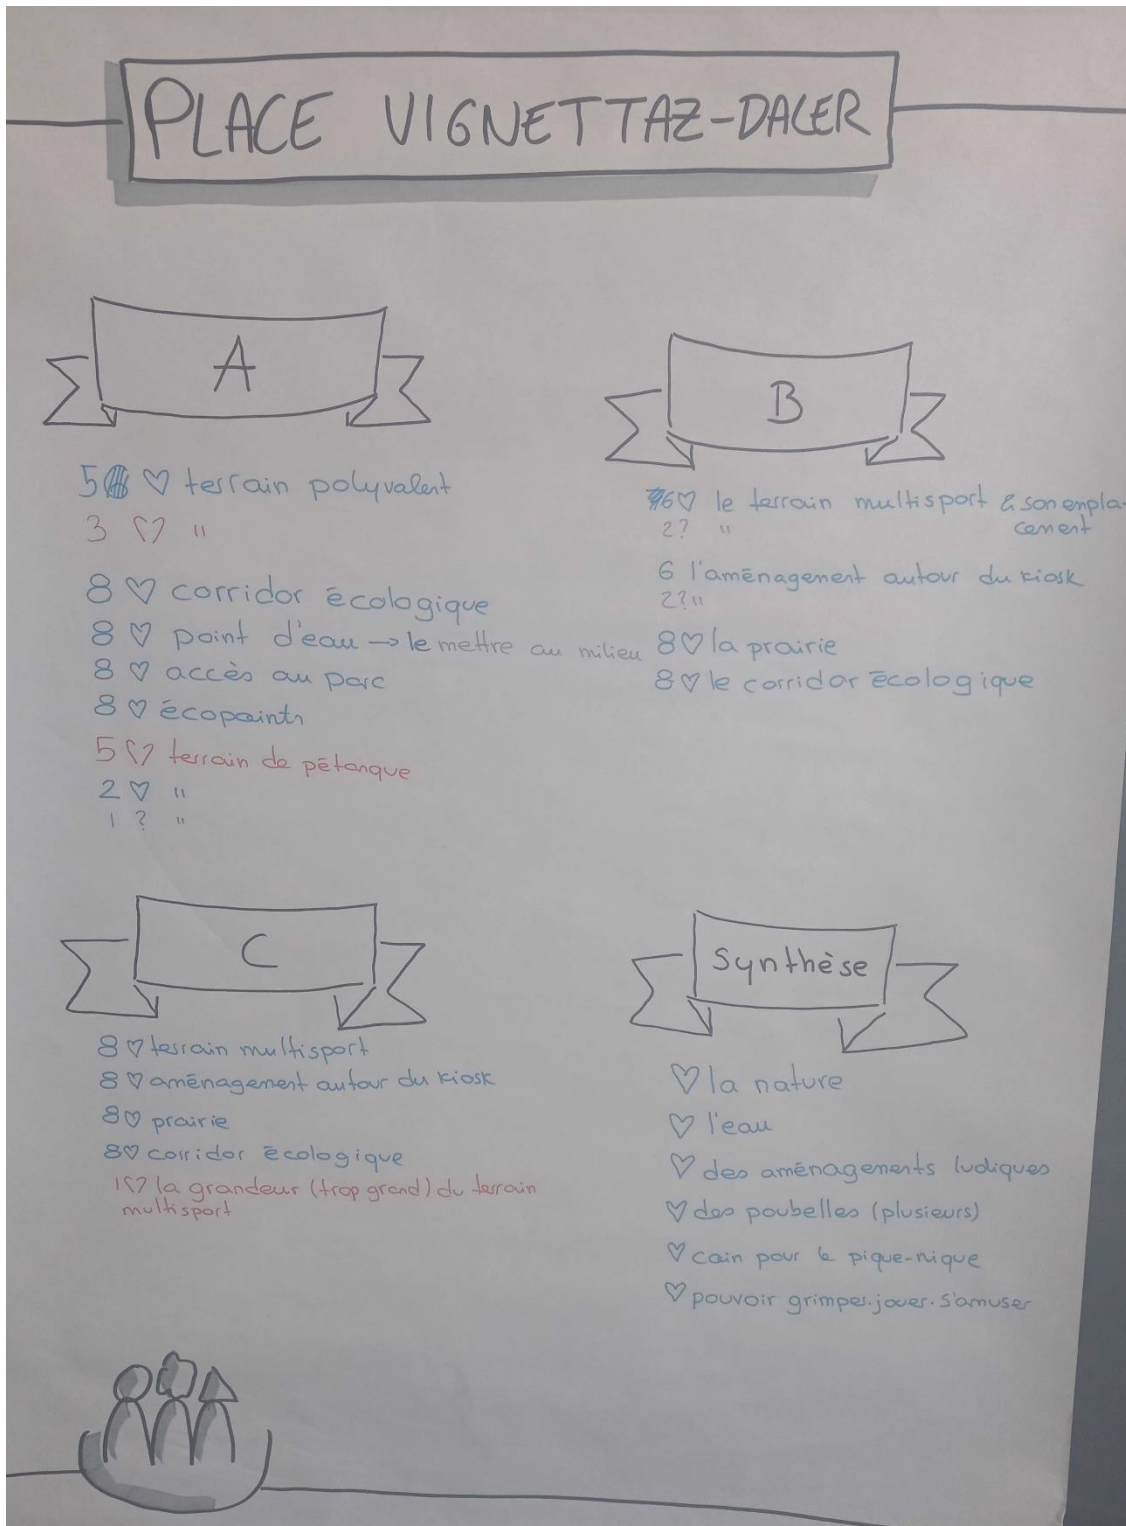 PLACE VIGNETTAZ-DALER
A
5 ♡ terrain polyvalent
3 "
8 ♡ corridor écologique
8 ♡ point d'eau → le mettre au milieu
8 ♡ accès au parc
8 ♡ écopoints
5 terrain de pétanque
2 ♡ "
1 ? "
B
6 ♡ le terrain multisport & son empla-
cement
2 ? "
6 l'aménagement autour du kiosk
2 ? "
8 ♡ la prairie
8 ♡ le corridor écologique
C
8 ♡ terrain multisport
8 ♡ aménagement autour du kiosk
8 ♡ prairie
8 ♡ corridor écologique
1 la grandeur (trop grand) du terrain
multisport
Synthèse
♡ la nature
♡ l'eau
♡ des aménagements ludiques
♡ des poubelles (plusieurs)
♡ coin pour le pique-nique
♡ pouvoir grimper. jouer. s'amuser